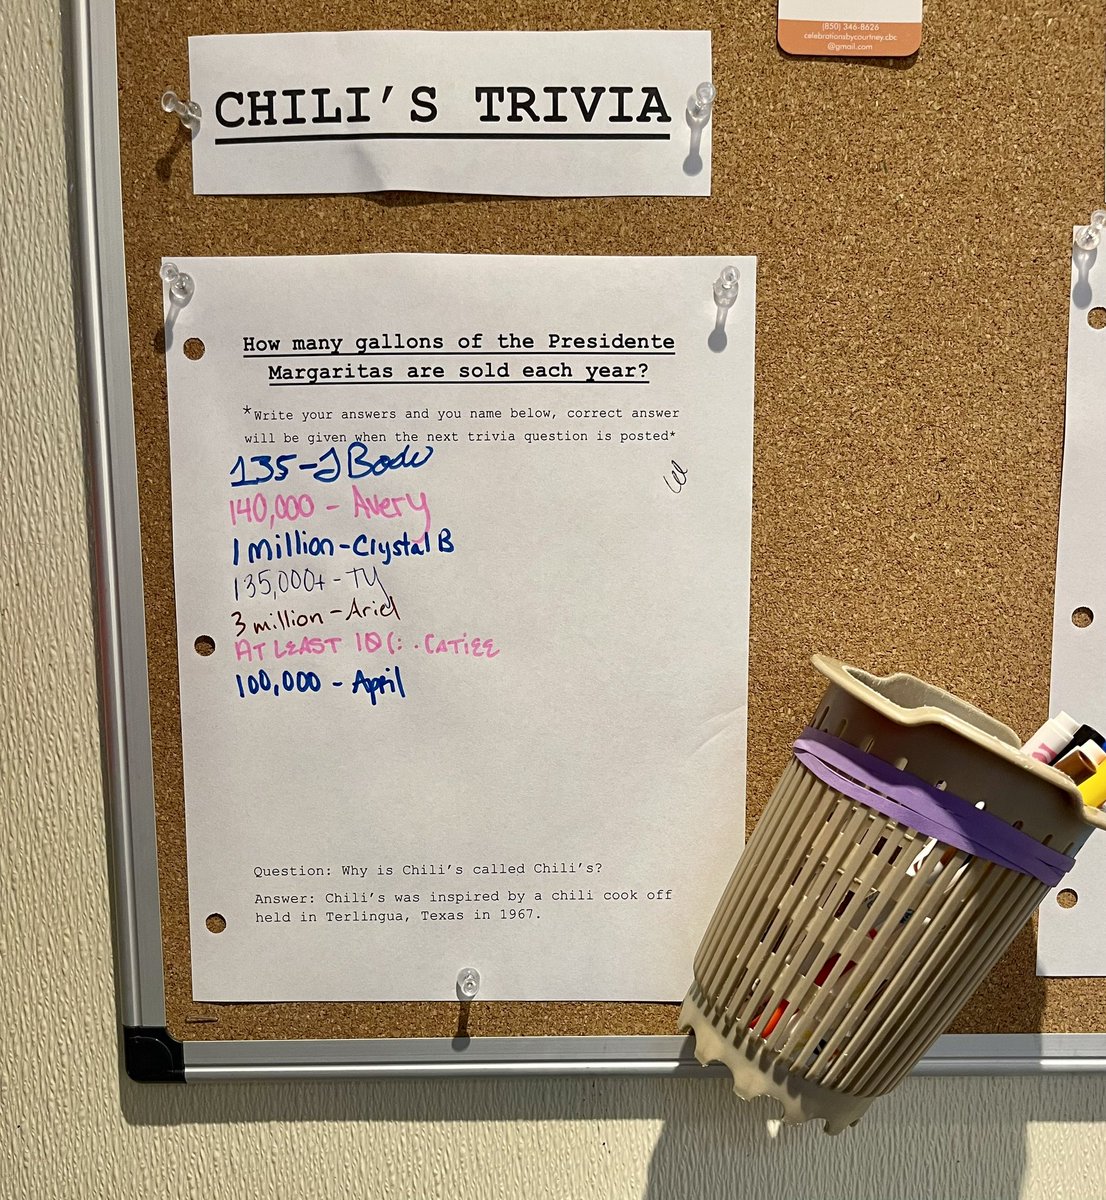 (850) 346-8626
celebrationsbycourtney.cbc
@gmail.com
CHILI'S TRIVIA
How many gallons of the Presidente
Margaritas are sold each year?
*Write your answers and you name below, correct answer
will be given when the next trivia question is posted*
135-J Bodw
140,000 - Avery
1 Million-Crystal B
135,000+ - TY
3 million - Ariel
AT LEAST 10(: . CATIEE
100,000 - April
Question: Why is Chili's called Chili's?
Answer: Chili's was inspired by a chili cook off
held in Terlingua, Texas in 1967.